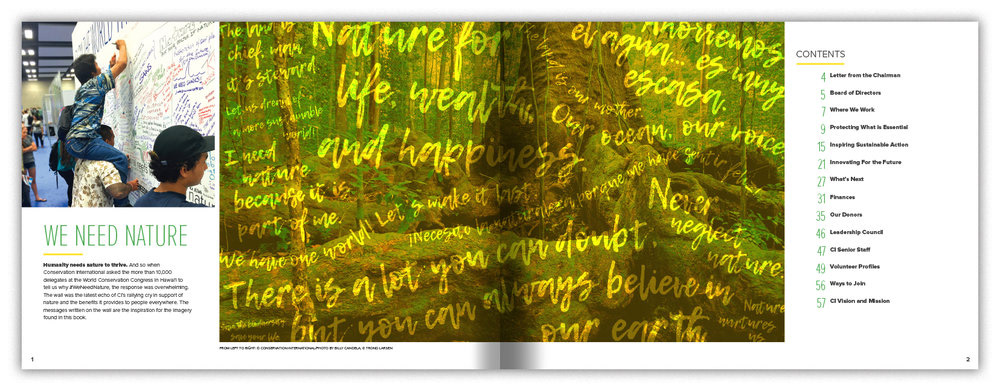 WE NEED NATURE
Humanity needs nature to thrive. And so when
Conservation International asked the more than 10,000
delegates at the World Conservation Congress in Hawai'i to
tell us why #WeNeedNature, the response was overwhelming.
The wall was the latest echo of CI's rallying cry in support of
nature and the benefits it provides to people everywhere. The
messages written on the wall are the inspiration for the imagery
found in this book.
1
The land is
chief, man
it's steward
Let us dream of
a more sustainable
world!
I need
nature
because it is
part of me.
Nature for
life, wealth,
and happiness
We have one world! Let's make it last
There is a lot you can doubt
but you can always believe in
our earth
el agua... es muy
escasa.
our mother.
Our ocean, our voice
¡Necesito
porque me hace sentir
Never
neglect
nature.
Nature
nurtures
us
FROM LEFT TO RIGHT: © CONSERVATION INTERNATIONAL/PHOTO BY BILLY CANDELA, © TROND LARSEN
CONTENTS
4 Letter from the Chairman
5 Board of Directors
7 Where We Work
9 Protecting What is Essential
15 Inspiring Sustainable Action
21 Innovating For the Future
27 What's Next
31 Finances
35 Our Donors
46 Leadership Council
47 CI Senior Staff
49 Volunteer Profiles
56 Ways to Join
57 CI Vision and Mission
2